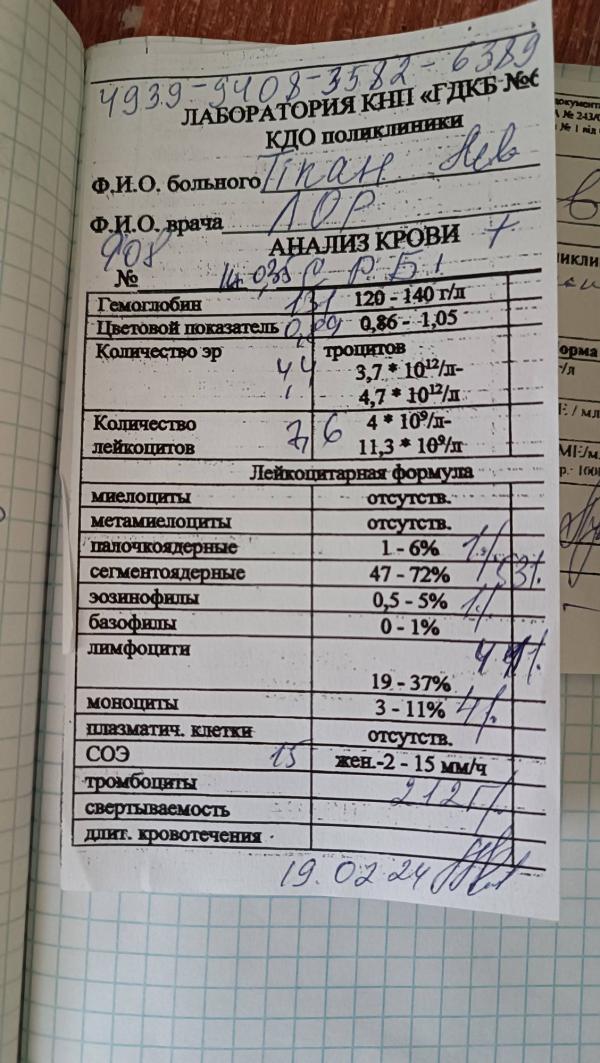 4939-9408-3582-6389
ЛАБОРАТОРИЯ КНП «ГДКБ №6
КДО поликлиники
Ф.И.О. больного
Ф.И.О. врача ЛОР
908 АНАЛИЗ КРОВИ
№
Гемоглобин 131 120 - 140 г/л
Цветовой показатель 0,89 0,86 - 1,05
Количество эр 4,4 троцитов
3,7 * 10¹²/л-
4,7 * 10¹²/л
Количество 7,6 4 * 10⁹/л-
лейкоцитов 11,3 * 10⁹/л
Лейкоцитарная формула
миелоциты отсутств.
метамиелоциты отсутств.
палочкоядерные 1 - 6% 1%
сегментоядерные 47 - 72% 53%
эозинофилы 0,5 - 5% 1%
базофилы 0 - 1%
лимфоцити 41%
19 - 37%
моноциты 3 - 11% 4%
плазматич. клетки отсутств.
СОЭ 15 жен.-2 - 15 мм/ч
тромбоциты 212 Г/л
свертываемость
длит. кровотечения
19.02.24